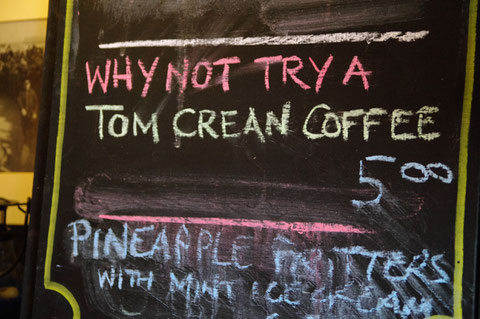 WHY NOT TRY A
TOM CREAN COFFEE
5 00
PINEAPPLE FRITTER'S
WITH MINT ICE CREAM